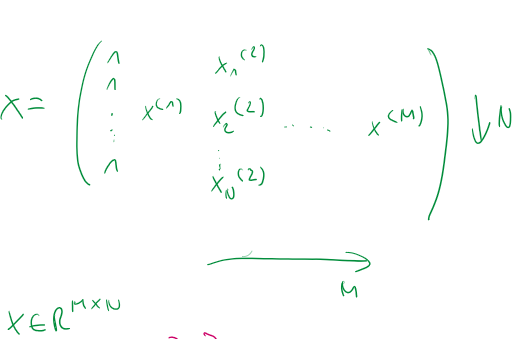 X = ( 1 x^(1) x_1^(2) ) ↓ N
1 x_2^(2) ..... x^(M)
⋮ ⋮
1 x_N^(2)
→
M
X ∈ R^{M×N}